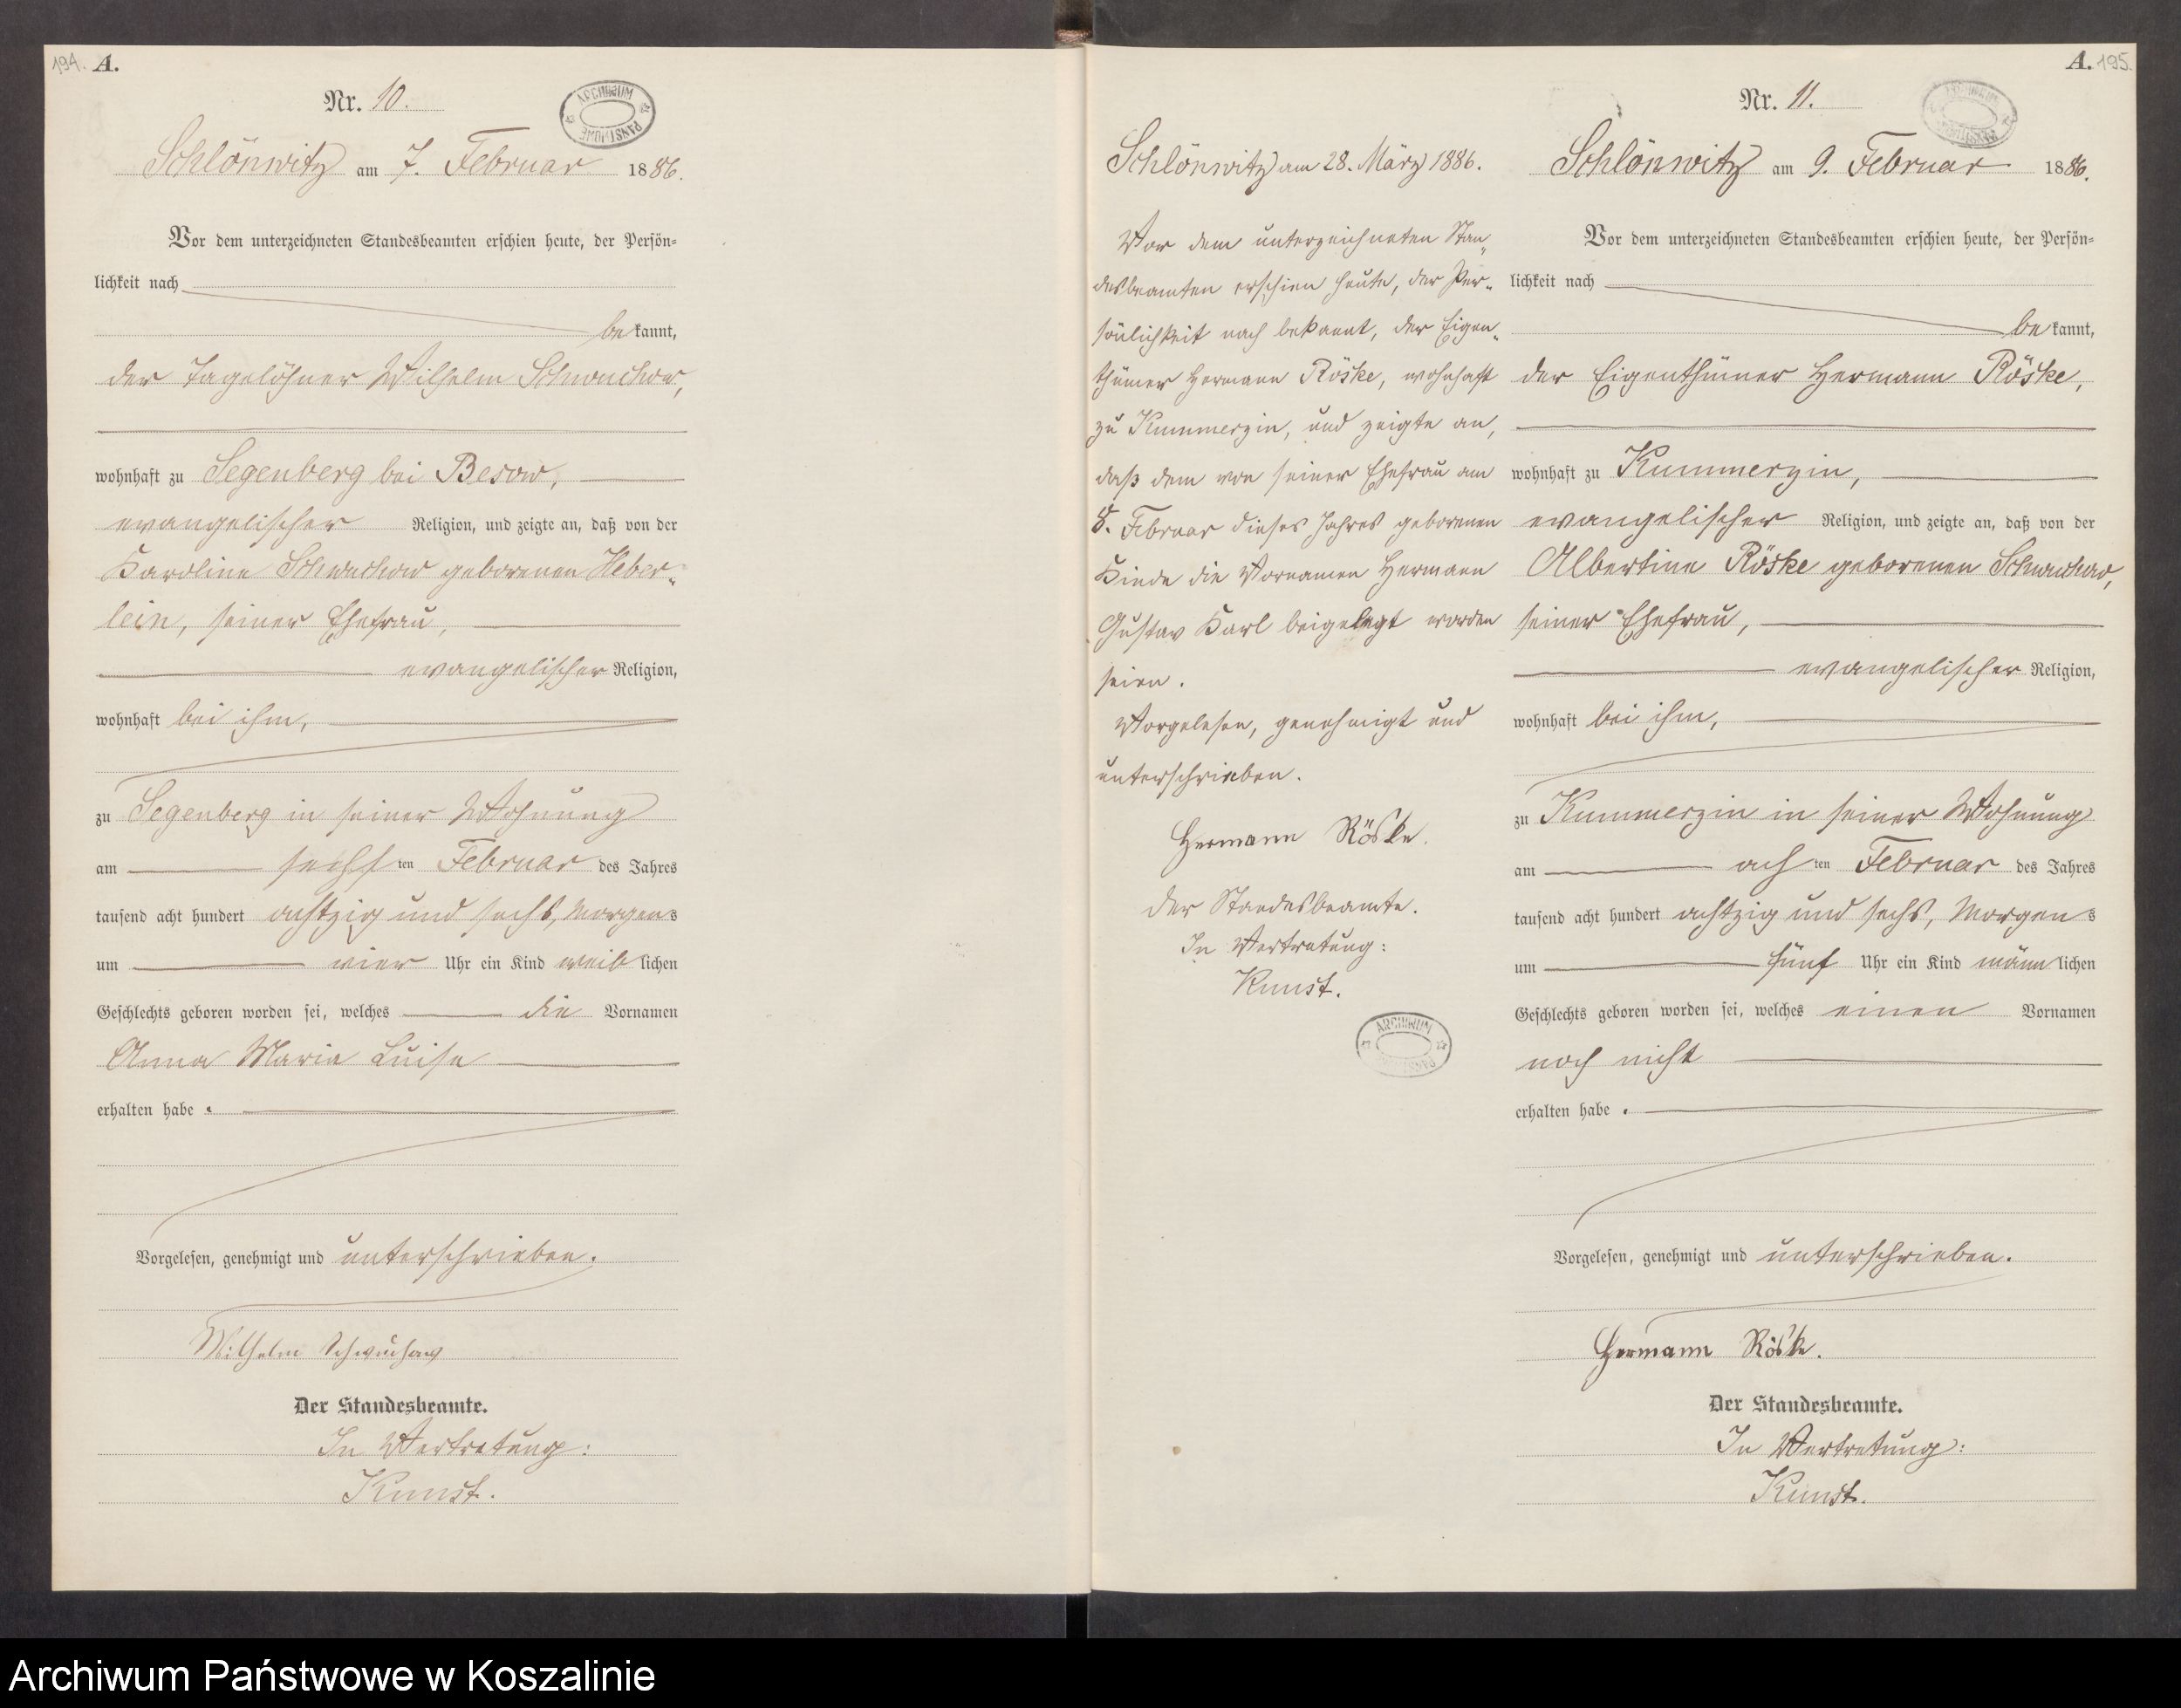 194. A.
Nr. 10.
ARCHIWUM PAŃSTWOWE
Schlönwitz am 7. Februar 1886.
Vor dem unterzeichneten Standesbeamten erschien heute, der Persön-
lichkeit nach
bekannt,
der Tagelöhner Wilhelm Schwuchow,
wohnhaft zu Segenberg bei Besow,
evangelischer Religion, und zeigte an, daß von der
Karoline Schwuchow geborenen Heber-
lein, seiner Ehefrau,
evangelischer Religion,
wohnhaft bei ihm,
zu Segenberg in seiner Wohnung
am sechsten Februar des Jahres
tausend acht hundert achtzig und sechs, Morgens
um vier Uhr ein Kind weiblichen
Geschlechts geboren worden sei, welches die Vornamen
Anna Maria Luise
erhalten habe.
Vorgelesen, genehmigt und unterschrieben.
Wilhelm Schwuchow
Der Standesbeamte.
In Vertretung:
Kunst.
Schlönwitz am 28. März 1886.
Vor dem unterzeichneten Stan-
desbeamten erschien heute, der Per-
sönlichkeit nach bekannt, der Eigen-
thümer Hermann Röske, wohnhaft
zu Kummerzin, und zeigte an,
daß dem von seiner Ehefrau am
8. Februar dieses Jahres geborenen
Kinde die Vornamen Hermann
Gustav Karl beigelegt worden
seien.
Vorgelesen, genehmigt und
unterschrieben.
Hermann Röske.
Der Standesbeamte.
In Vertretung:
Kunst.
ARCHIWUM
A. 195.
Nr. 11.
Schlönwitz am 9. Februar 1886.
Vor dem unterzeichneten Standesbeamten erschien heute, der Persön-
lichkeit nach
bekannt,
der Eigenthümer Hermann Röske,
wohnhaft zu Kummerzin,
evangelischer Religion, und zeigte an, daß von der
Albertine Röske geborenen Schwuchow,
seiner Ehefrau,
evangelischer Religion,
wohnhaft bei ihm,
zu Kummerzin in seiner Wohnung
am achten Februar des Jahres
tausend acht hundert achtzig und sechs, Morgens
um fünf Uhr ein Kind männlichen
Geschlechts geboren worden sei, welches einen Vornamen
noch nicht
erhalten habe.
Vorgelesen, genehmigt und unterschrieben.
Hermann Röske.
Der Standesbeamte.
In Vertretung:
Kunst.
Archiwum Państwowe w Koszalinie